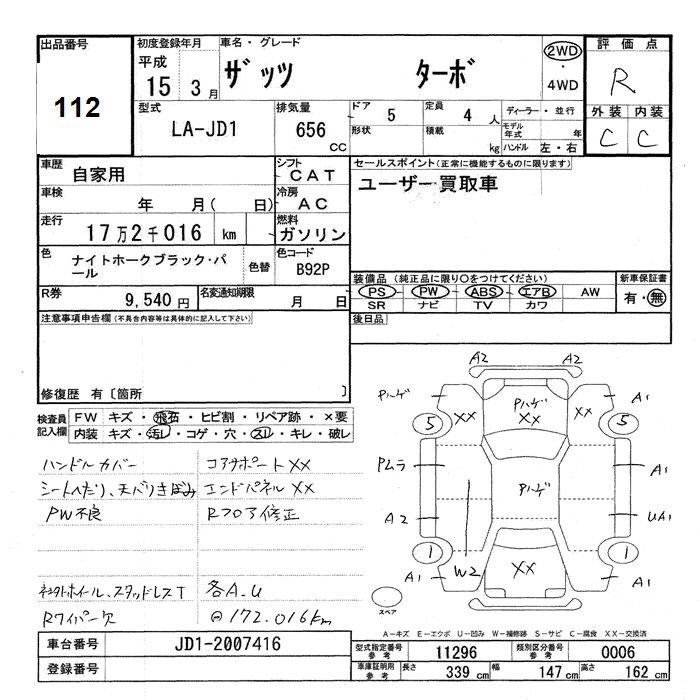 出品番号
112
初度登録年月
平成
15 3 月
車名・グレード
ザッツ ターボ
2WD
・
4WD
評価点
R
外装 内装
C C
型式
LA-JD1
排気量
656 cc
ドア 5
形状
定員 4 人
積載 kg
ディーラー・並行
モデル年式 年
ハンドル 左・右
車歴 自家用
シフト CAT
車検 年 月( 日)
冷房 AC
走行 17万2千016 km
燃料 ガソリン
色 ナイトホークブラック・パール
色替
色コード B92P
R券 9,540 円
名変通知期限 月 日
セールスポイント(正常に機能するものに限ります)
ユーザー買取車
装備品 (純正品に限り○をつけてください)
PS PW ABS エアB AW
SR ナビ TV カワ
新車保証書
有・無
後日品
注意事項申告欄(不具合内容等は具体的に記入して下さい)
修復歴 有〔箇所 〕
検査員記入欄
FW キズ・飛石・ヒビ割・リペア跡・×要
内装 キズ・汚レ・コゲ・穴・スレ・キレ・破レ
ハンドルカバー
シートへたり、天バリきばみ
PW不良
ネオトホイール、スタッドレスT
Rワイパー欠
コアサポートXX
エンドパネルXX
Rフロア修正
各A.U
⊖172.016km
A2 A2
ハゲ XX ハゲ XX XX A1
5 5
Pムラ ハゲ A1
A2 UA1
1 1
A1 W2 XX A1
スペア
A―キズ E―エクボ U―凹み W―補修跡 S―サビ C―腐食 XX―交換済
車台番号 JD1-2007416
登録番号
型式指定番号 参考 11296
類別区分番号 参考 0006
車庫証明用 参考 長さ 339 cm 幅 147 cm 高さ 162 cm